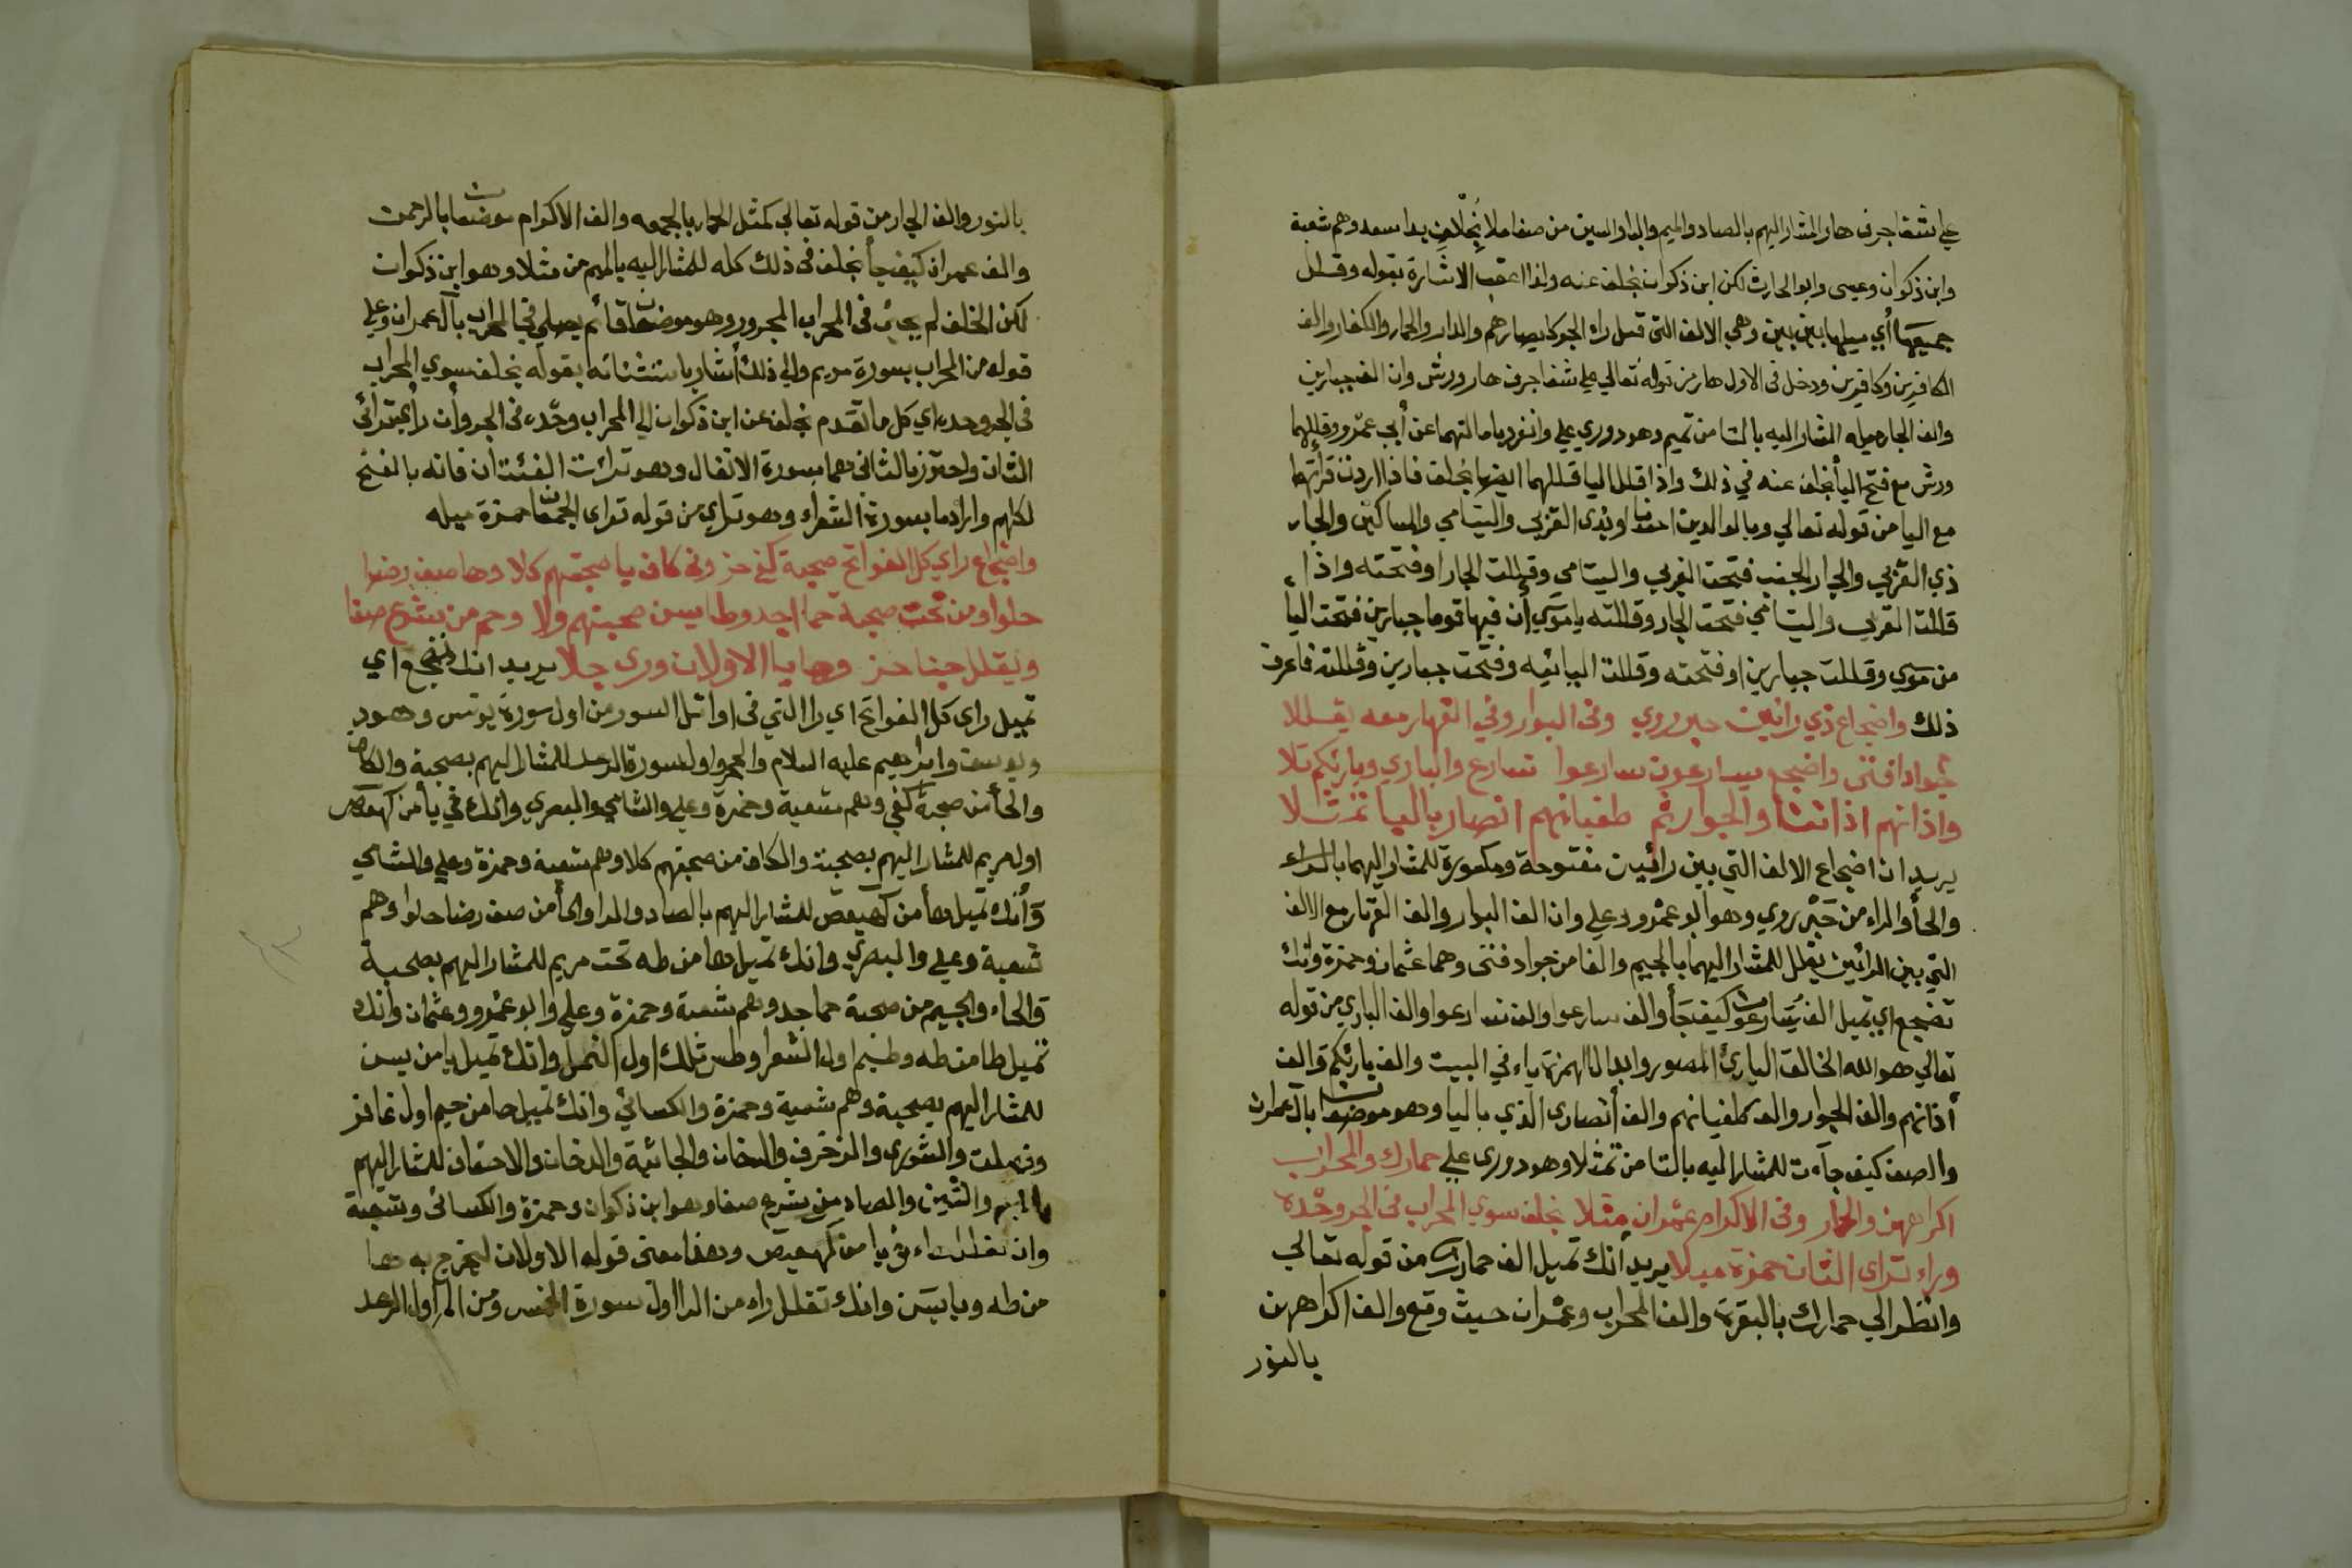 علي شفا جرف هار المشار اليهم بالصاد والميم والباء والسين من صفا ملا بخلاف بدا سعد وهم شعبة
وابن ذكوان وعيسى وابو الحارث لكن ابن ذكوان بخلف عنه ولذا اعقب الاشارة بقوله وقلل
جميعها أي ميلها بين بين وهي الالف التي قبل راء الجر كابصارهم والدار والحمار والكفار والف
الكافرين وكافرين ودخل في الاول هار من قوله تعالي علي شفا جرف هار ورش وان الف جبارين
والف الجار ميله المشار اليه بالتا من تميم وهو دوري علي وانفرد بامالتهما عن أبي عمرو وقللهما
ورش مع فتح اليا بخلف عنه في ذلك واذا قلل اليا قللهما ايضا بخلف فاذا اردت قرأتهما
مع اليا من قوله تعالي وبالوالدين احسانا وبذى القربي واليتامي والمساكين والجار
ذي القربي والجار الجنب فتحت القربي واليتامي وقللت الجار او فتحته واذا
قللت القربي واليتامي فتحت الجار وقللته ياموسي إن فيها قوما جبارين فتحت اليا
من موسي وقللت جبارين او فتحته وقللت اليائيه وفتحت جبارين وقللته فاعرف
ذلك واضجاع ذي رائين حبر روي وفي البوار وفي القهار معه يقللا
جواد افتى واضجع يسارعون سارعوا نسارع والباري وبارئكم تلا
واذانهم اذاننا والجوار ثم طغيانهم انصار باليا تمثلا
يريد ان اضجاع الالف التي بين رائين مفتوحة ومكسورة للمشار اليهما بالراء
والحأ والراء من حَبْر روي وهو ابو عمرو وعلي وان الف البوار والف القهار مع الالف
التي بين الرائين يقلل للمشار اليهما بالجيم والفا من جواد فتى وهما عثمان وحمزة وانك
تضجع اي تميل الف يسارعون كيف جأ والف سارعوا والف نسارعوا والف الباري من قوله
تعالي هو الله الخالق البارئ المصور وابدال الهمزة ياء في البيت والف بارئكم والف
أذانهم والف الجوار والف طغيانهم والف أنصارى الذي باليا وهو موضعان بآل عمران
والصف كيف جآءت للمشار اليه بالتا من تمثلا وهو دورى علي حمارك والمحراب
اكراههن والحمار وفي الاكرام عمران مثلا بخلف سوي المحراب في الجر وحده
وراء تراى الثان حمزة ميلا يريد أنك تميل الف حمارك من قوله تعالي
وانظر الي حمارك بالبقرة والف المحراب وعمران حيث وقع والف اكراههن
بالنور
بالنور والف الحمار من قوله تعالي كمثل الحمار بالجمعه والف الاكرام موضعان بالرحمن
والف عمران كيف جأ بخلف في ذلك كله للمشار اليه بالميم من مثلا وهو ابن ذكوان
لكن الخلف لم يجئ في المحراب المجرور وهو موضعان قائم يصلي في المحراب بآل عمران وعلي
قومه من المحراب بسورة مريم والي ذلك أشار باستثنائه بقوله بخلف سوي المحراب
في الجر وحده اي كل ما تقدم بخلف عن ابن ذكوان الي المحراب وحده في الجر وأن رأ يقرائ
الثان واحترز بالثاني عما بسورة الانفال وهو ترائت الفئتان فانه بالفتح
لكلهم وارادما بسورة الشعراء وهو تراي من قوله تراى الجمعان حمزة ميله
واضجاع راي كل الفواتح صحبة كفى حز وفي كاف يا صحبتهم كلا وها صف رضا
حلوا ومن تحت صحبة حما اجد وطا يس صحبتهم ولا وحم من شرع صفا
ويقلل جنا حز وها يا الاولان ورى جلا يريد انك تضجع اي
تميل راى كل الفواتح اي را التي في اوائل السور من اول سورة يونس وهود
ويوسف وابراهيم عليه السلام والحجر اول سورة الرعد للمشار اليهم بصحبة والكاف
والحأ من صحبة كفي وهم شعبة وحمزة وعلي والشامي والبصري وانك في يأ من كهيعص
اول مريم للمشار اليهم بصحبة والكاف من صحبتهم كلا وهم شعبة وحمزة وعلي والشامي
وأنك تميل هأ من كهيعص للمشار اليهم بالصاد والراء والحأ من صف رضا حلوا وهم
شعبة وعلي والبصري وانك تميل ها من طه تحت مريم للمشار اليهم بصحبة
والحاء والجيم من صحبة حما جد وهم شعبة وحمزة وعلي وابو عمرو وعثمان وانك
تميل طا من طه وطسم اول الشعرا وطس تلك اول النمل وانك تميل يا من يسن
للمشار اليهم بصحبة وهم شعبة وحمزة والكسائي وانك تميل حا من حم اول غافر
وفصلت والشورى والزخرف والدخان والجاثية والدخان والاحقاف للمشار اليهم
بالميم والشين والصاد من شرع صفا وهو ابن ذكوان وحمزة والكسائى وشعبة
يا من كهيعص وهذا معنى قوله الاولان ليخرج به ها
من طه ويا يسَن وانك تقلل راء من الر اول سورة الخمس ومن المر اول الرعد